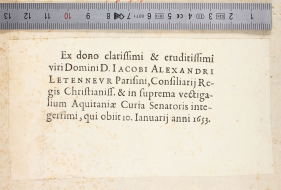 Ex dono clarissimi & eruditissimi
viri Domini D. IACOBI ALEXANDRI
LETENNEVR Parisini, Consiliarij Re-
gis Christianiss. & in suprema vectiga-
lium Aquitaniæ Curia Senatoris inte-
gerrimi, qui obiit 10. Ianuarij anni 1653.